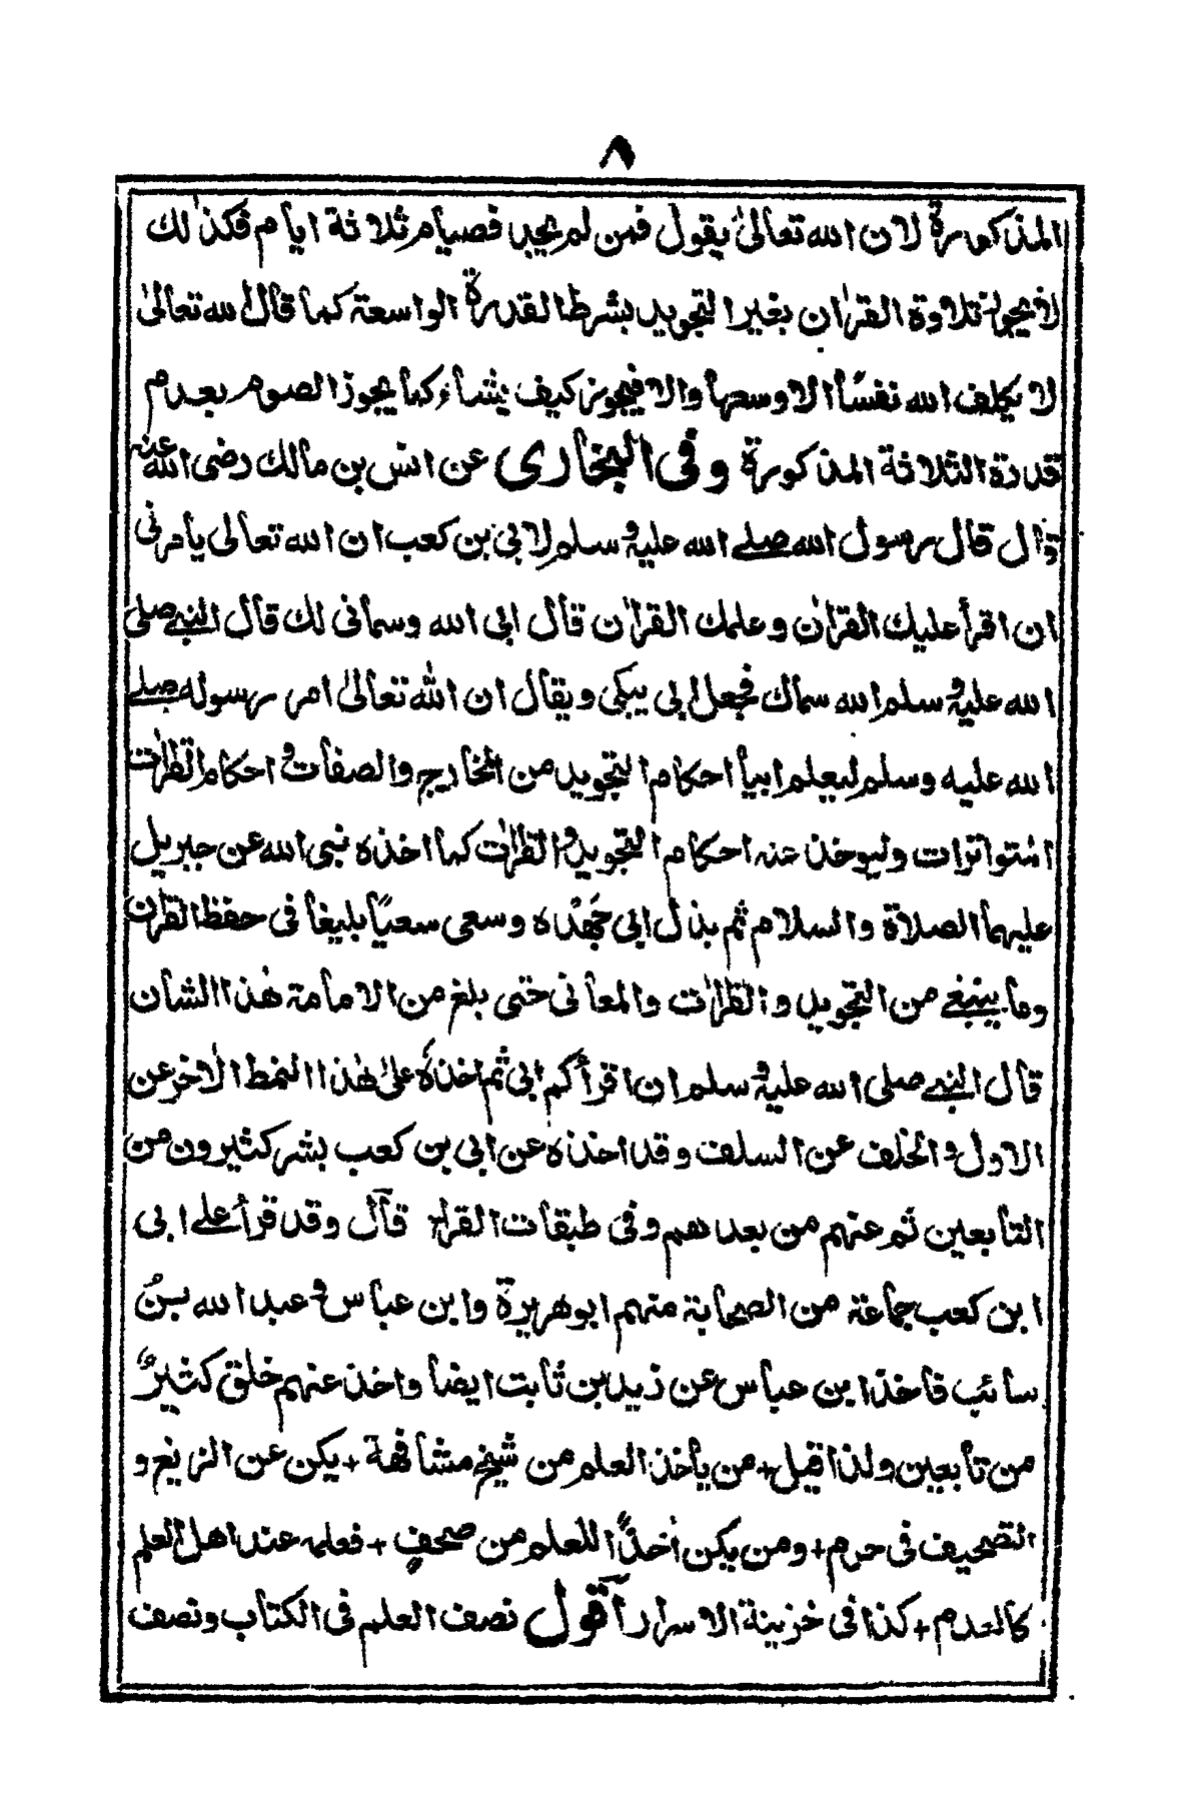 ٨
المذكورة لان الله تعالىٰ يقول فمن لم يجد فصيام ثلاثة ايام فكذٰلك
لا يجوز تلاوة القراٰن بغير التجويد بشرط القدرة الواسعة كما قال الله تعالىٰ
لا يكلف الله نفسًا الا وسعها والا فيجوز كيف يشاء كما يجوز الصوم بعدم
قدرة الثلاثة المذكورة وفى البخارى عن انس بن مالك رضى الله عنه
قال قال رسول الله صلے الله عليه و سلم لابي بن كعب ان الله تعالى يأمرنى
ان اقرأ عليك القراٰن وعلمك القراٰن قال ابي الله وسمانى لك قال النبے صلى
الله عليه و سلم الله سماك فجعل ابى يبكى ويقال ان الله تعالىٰ امر رسوله صلے
الله عليه وسلم ليعلم ابيا احكام التجويد من المخارج والصفات و احكام القراٰت
المتواترات وليوخذ منه احكام التجويد و القراٰت كما اخذه نبى الله عن جبريل
عليهما الصلاة والسلام ثم بذل ابى جَهْدَه وسعى سعيًا بليغا فى حفظ القراٰن
وما ينبغے من التجويد والقراٰت والمعانى حتى بلغ من الامامة هٰذا الشأن
قال النبے صلى الله عليه و سلم ان اقرأكم ابى ثم اخذهٗ علىٰ هٰذا النمط الاٰخر عن
الاول و الخلف عن السلف وقد اخذه عن ابى بن كعب بشر كثيرون من
التابعين ثم عنهم من بعدهم وفى طبقات القراء قال وقد قرأ علے ابى
ابن كعب جماعة من الصحابة منهم ابوهريرة وابن عباس و عبد الله بن
سائب فاخذ ابن عباس عن زيد بن ثابت ايضا واخذ عنهم خلق كثيرٌ
من تابعين ولذا قيل+من يأخذ العلم من شيخ مشافهة +يكن عن الزيغ و
التصحيف فى حرم+ومن يكن اٰخذًا للعلم من صحفٍ +فعلمه عند اهل العلم
كالعدم+كذا فى خزينة الاسرار اقول نصف العلم فى الكتاب ونصف